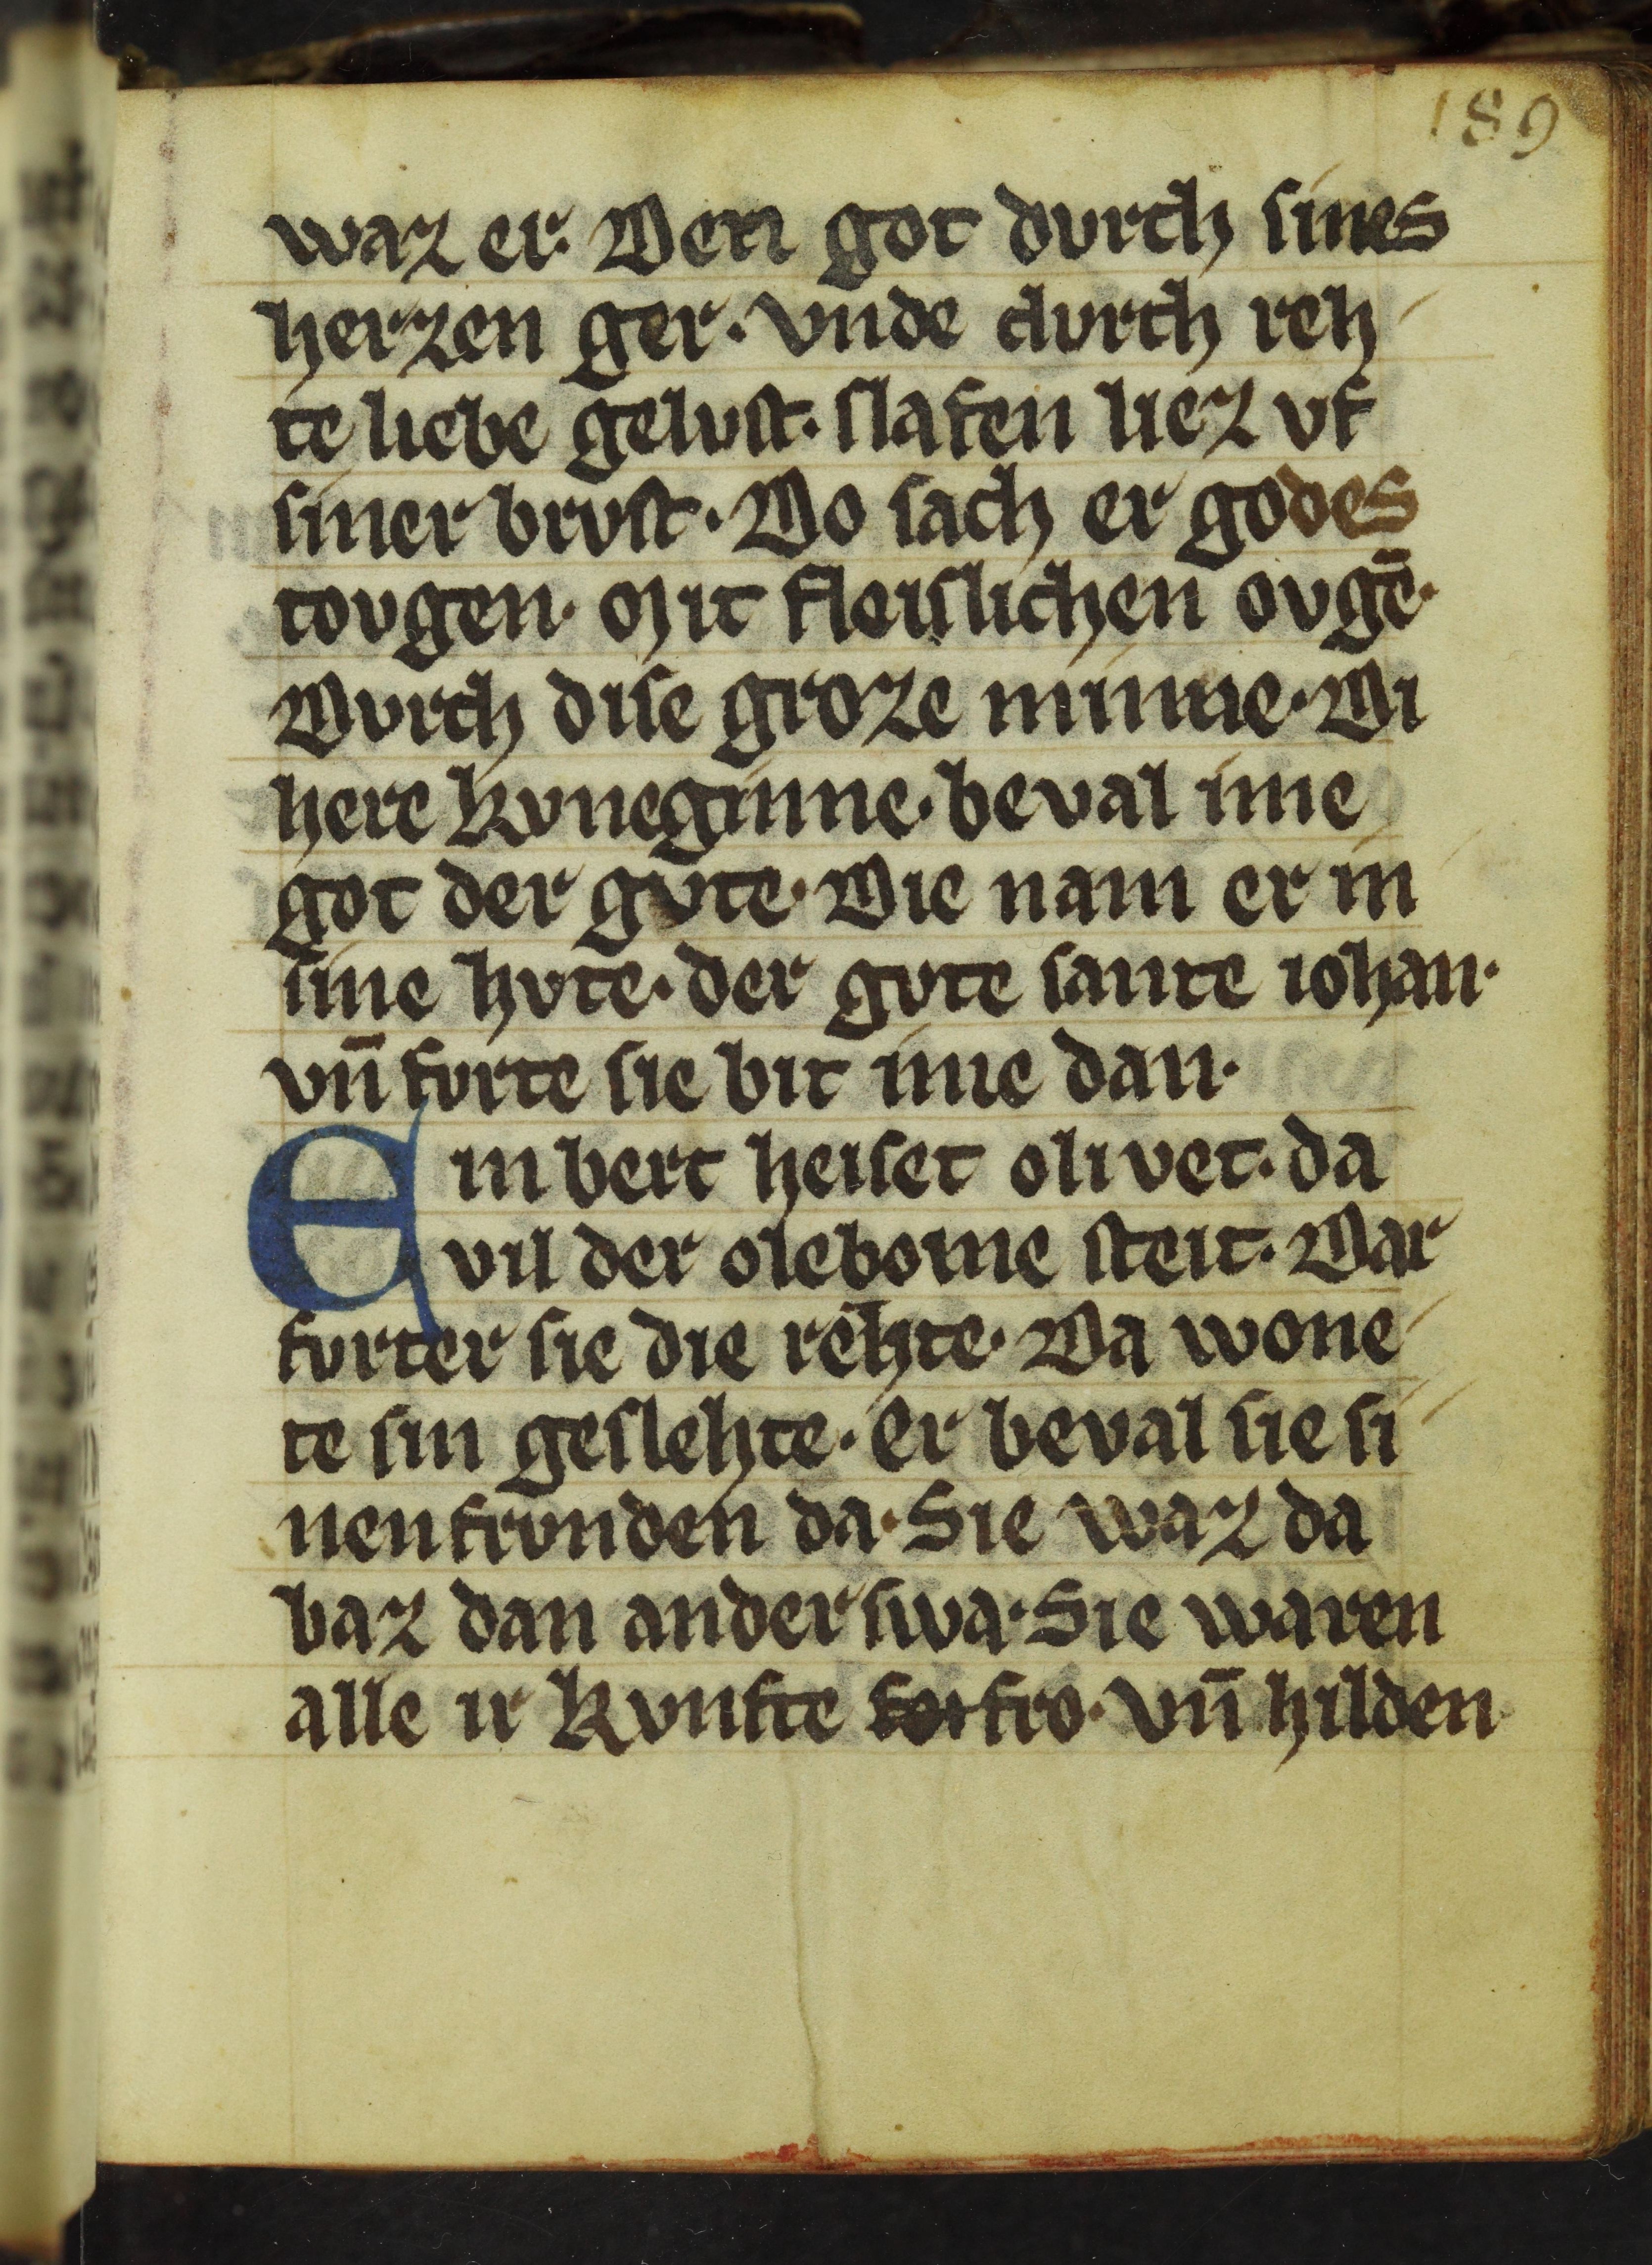 189
waz er. Den got dvrch sines
herzen ger. vnde dvrch reh
te liebe gelvst. slafen liez vf
siner brvst. Do sach er godes
tovgen. Mit fleislichen ovgē.
Dvrch dise groze minne. Di
here kvneginne. beval ime
got der gvte. Die nam er in
sine hvte. der gvte sante iohan.
vn̄ fvrte sie bit ime dan.
Ein bert heiset olivet. da
vil der olebome steit. Dar
fvrter sie die rehte. Da wone
te sin geslehte. Er beval sie si
nen frvnden da. Sie waz da
baz dan anderswa. Sie waren
alle ir kvnfte fro. vn̄ hilden